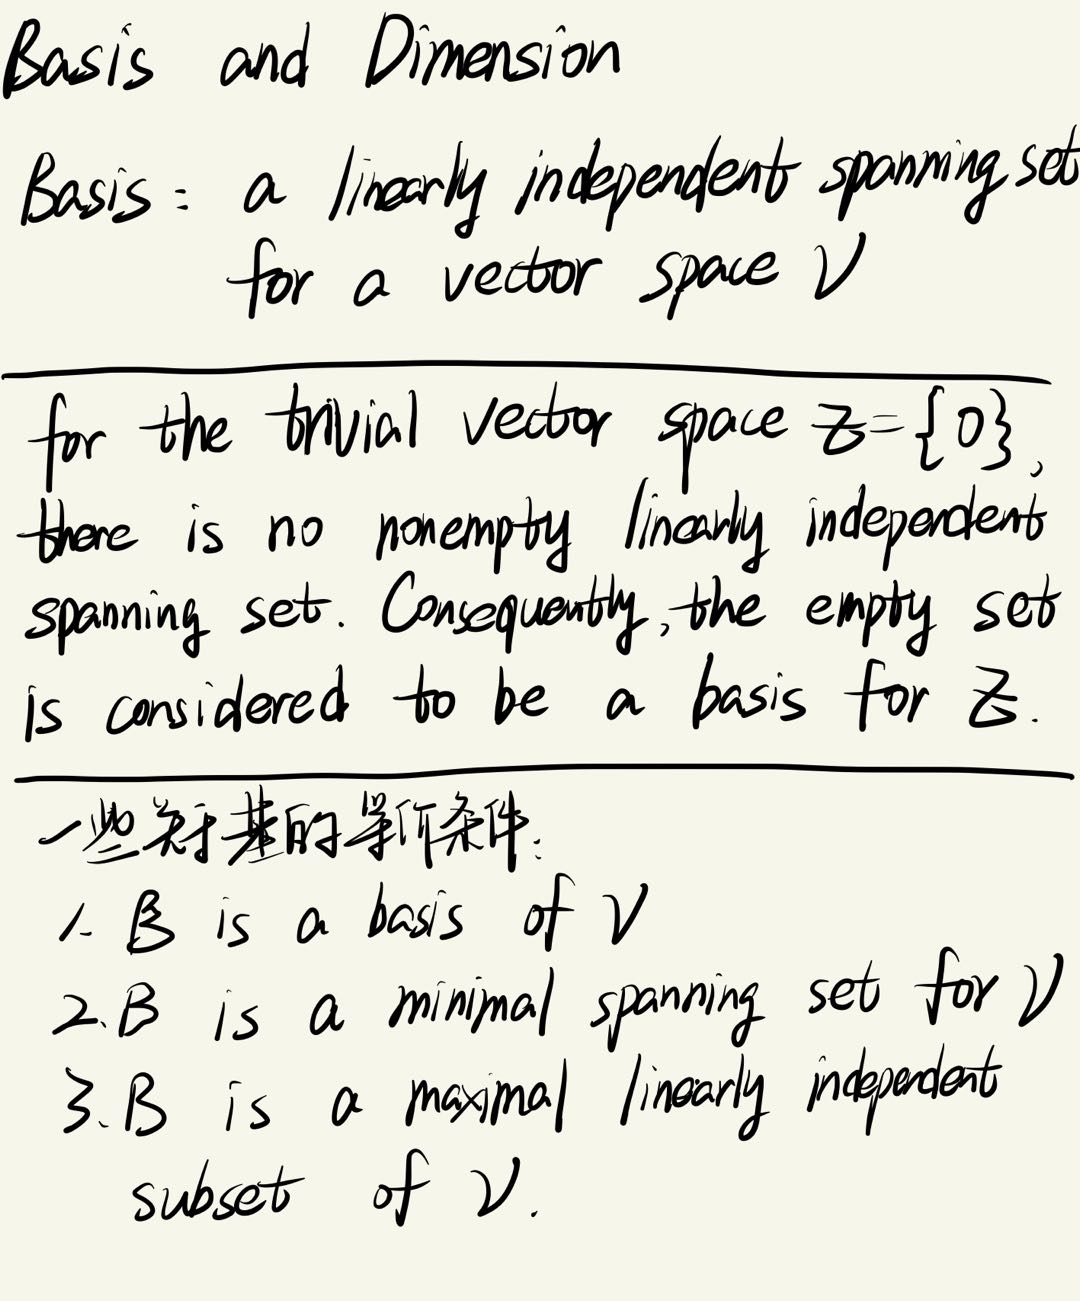 Basis and Dimension
Basis: a linearly independent spanning set
for a vector space V
for the trivial vector space Z={0},
there is no nonempty linearly independent
spanning set. Consequently, the empty set
is considered to be a basis for Z.
一些关于基的等价条件:
1. B is a basis of V
2. B is a minimal spanning set for V
3. B is a maximal linearly independent
subset of V.